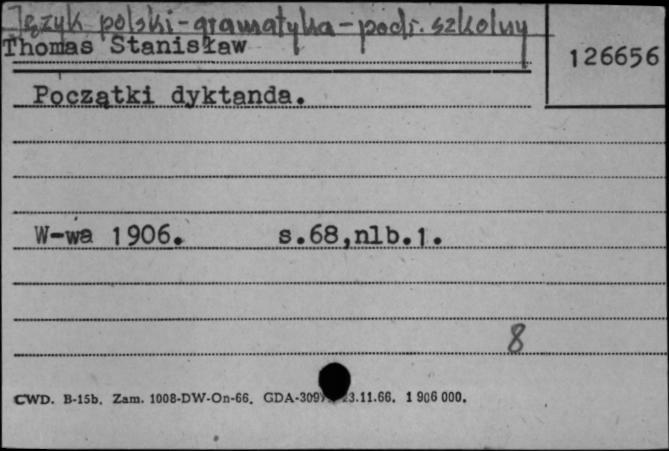 Język polski - gramatyka - podr. szkolny
Thomas Stanisław
126656
Początki dyktanda.
W-wa 1906. s.68,nlb.1.
8
CWD. B-15b. Zam. 1008-DW-On-66. GDA-309 23.11.66. 1 906 000.